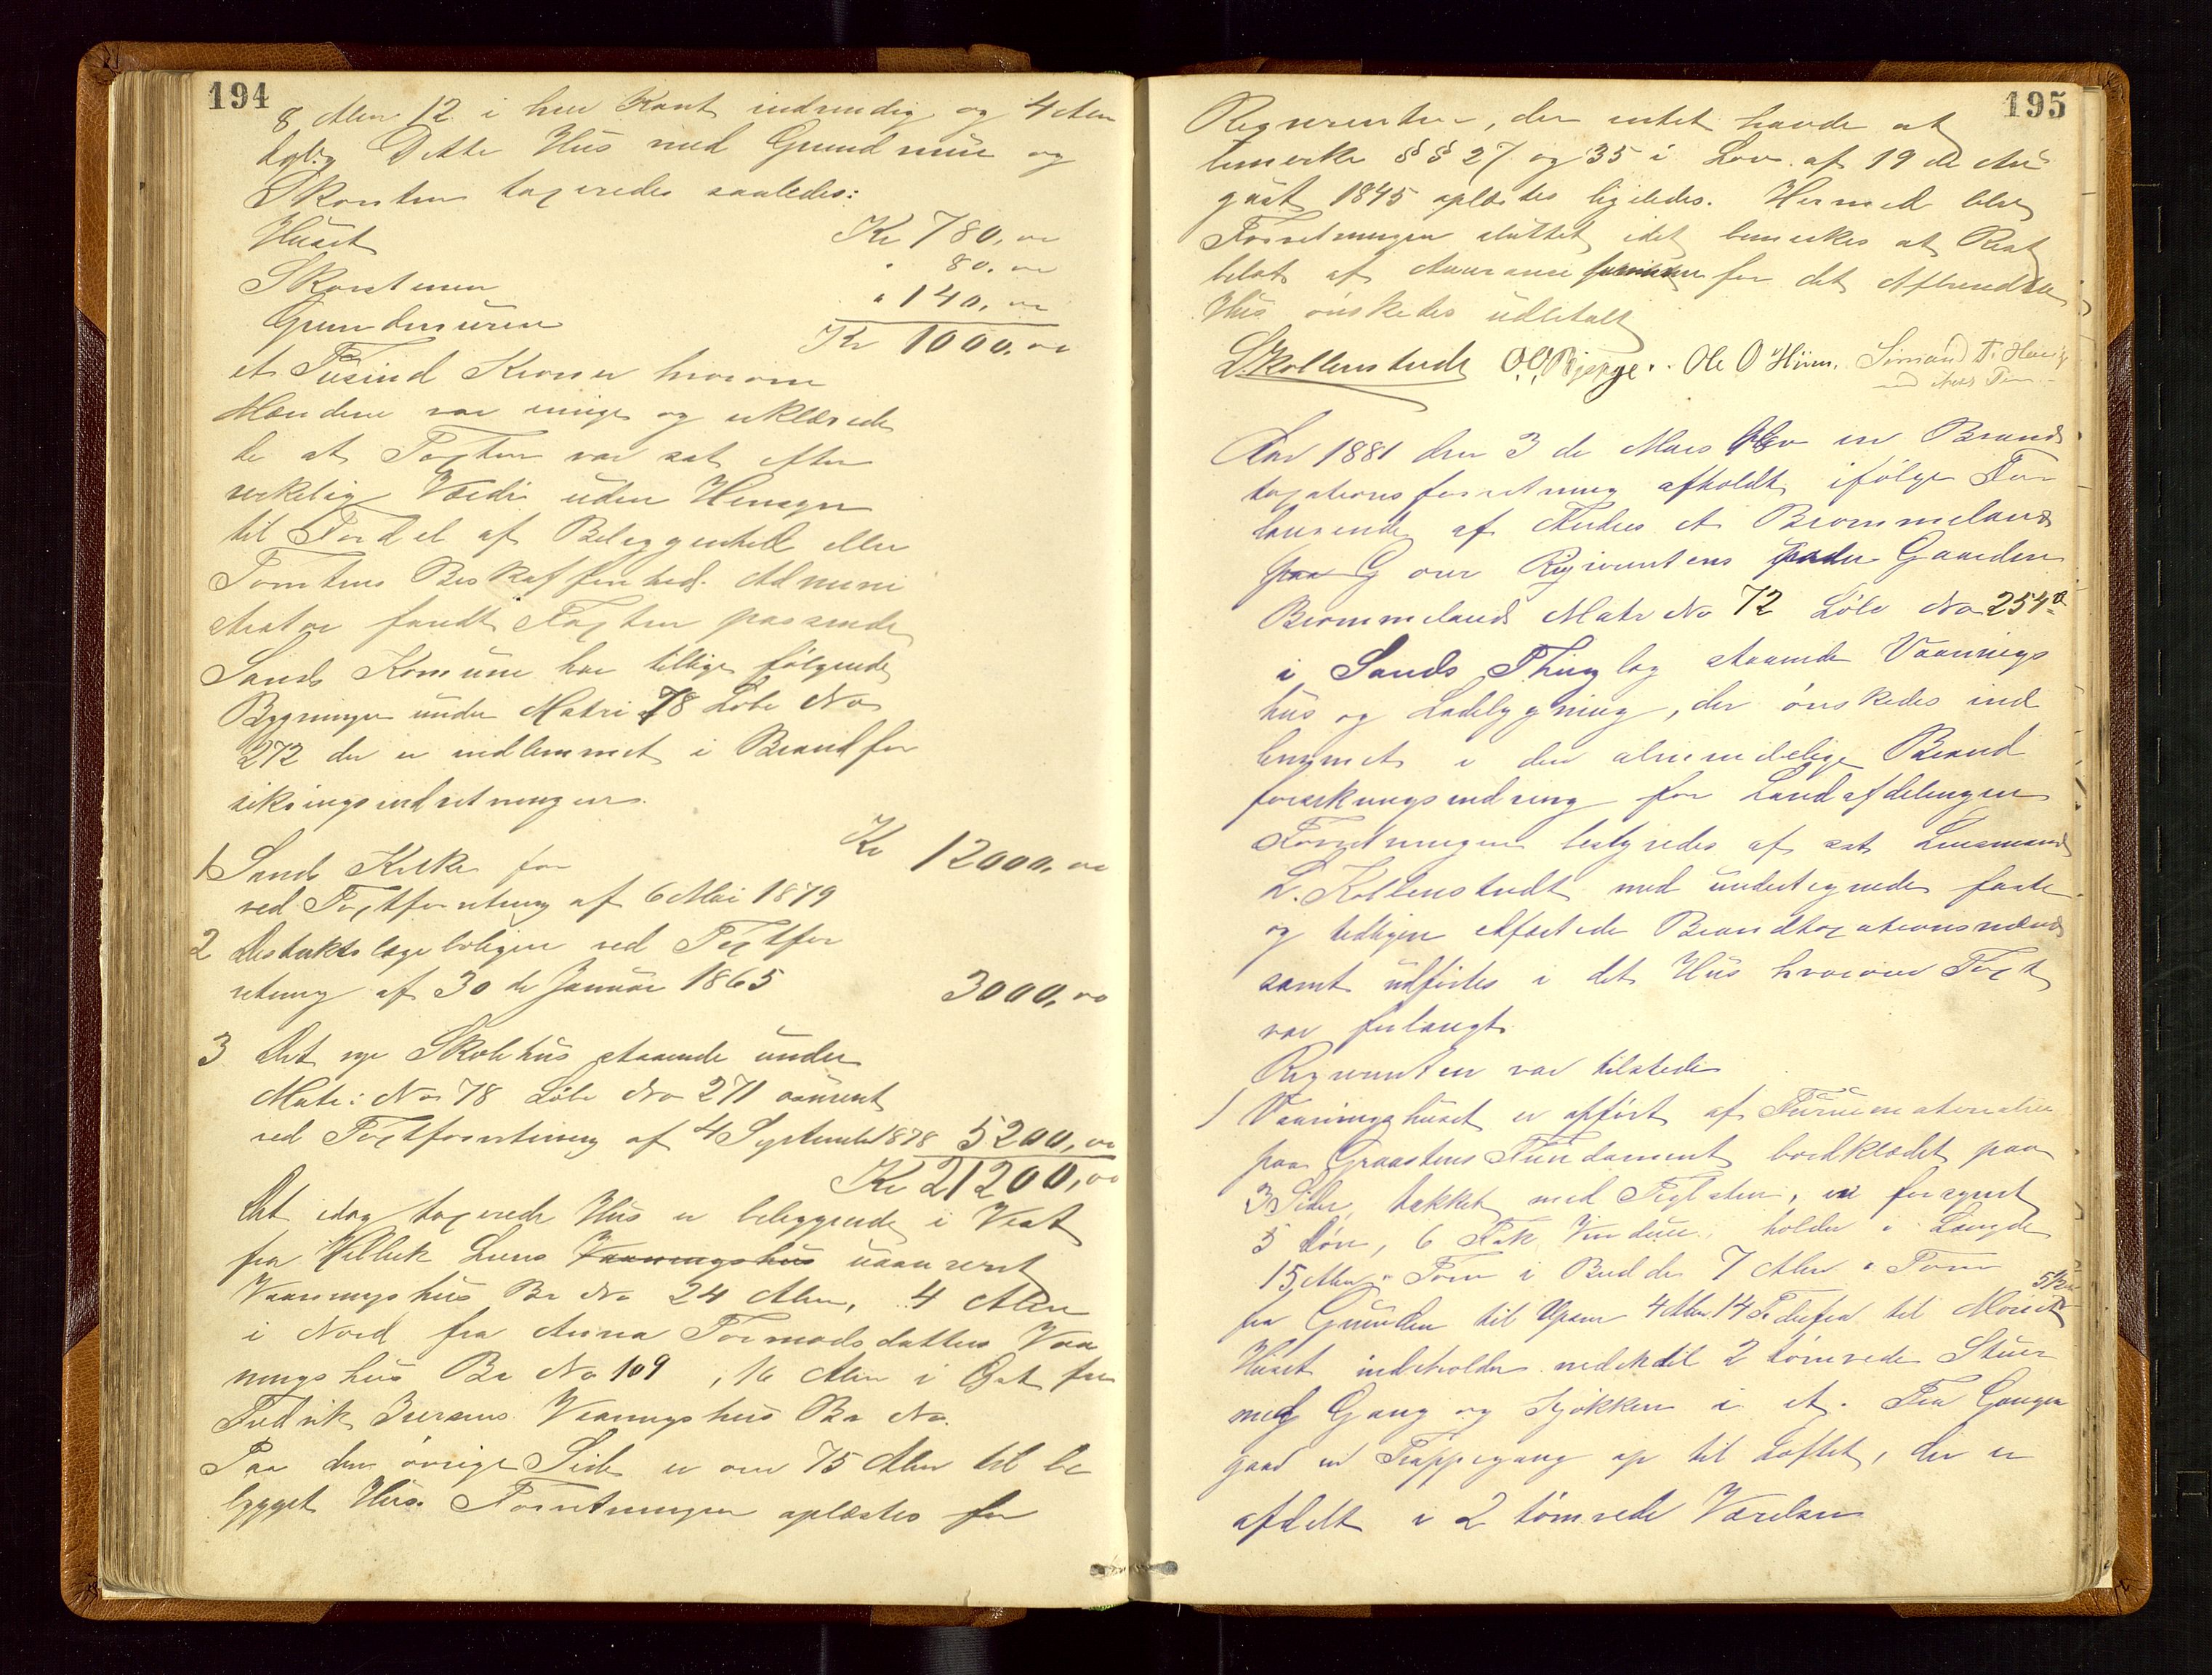 194
8 Alen 12 i hver Kant indvendig og 4 Alen
dybg Dette Hus med Grundmur og
Skorsten taxeredes saaledes:
Huset Kr 780,00
Skorstenen " 80.00
Grundmuren " 140,00
Kr 1000.00
et Tusind Kroner hvorom
Mændene var enige og erklærede
de at Taxten var sat efter
verkelig Værdi uden Hensyn
til Fordel af Beleggenhed eller
Tomtens Beskaffenhed. Admini
strator fandt Taxten passende
Sands Komune har tillige følgende
Bygninger under Matr: 78 Løbe No
272 der er indlemmet i Brandfor
sikringsindretningen.
1 Sands Kirke for Kr 12000,00
ved Taxtforretning af 6 Mai 1879
2 Distriktslægeboligen ved Taxtfor
retning af 30 de Januar 1865 3000,00
3 Det nye Skolehus staaende under
Matr: No 78 Løbe No 271 assureret
ved Taxtforretning af 4 September 1878 5200,00
Kr 21200,00
Det idag taxerede Hus er beleggende i Vest
fra Lœns Vaaningshus uassureret
Vaaningshus Br No 24 Alen, 4 Alen
i Nord fra Anna Tormodsdatters Vaa
ningshus Br No 109, 16 Alen i Øst fra
Fredrik Iversens Vaaningshus Br No.
Paa den øvrige Side er over 75 Alen til be
bygget Hus. Forretningen oplæstes for
195
Reqvirenten, der intet havde at
bemerke §§ 27 og 35 i Lov af 19 de Au
gust 1845 oplæstes ligeledes. Hermed blev
Forretningen sluttet idet bemerkes at Rest
beløb af Assurance for det Afbrendte
Hus ønskedes udbetalt
L. Kollenstedt O. O. Bjerge. Ole O Hiim. Simand T. Havig
med iholdt Pen
Aar 1881 den 3 de Mars blev en Brand
taxationsforretning afholdt ifølge For
langende af Andres A. Brommeland
paa G over Reqvirentens paa den Gaarden
Brommeland Matr No 72 Løbe No 254a
i Sands Thinglag staaende Vaanings
hus og Ladebygning, der ønskedes ind
lemmet i den almindelige Brand
forsikringsindretning for Landafdelingen
Forretningen bestyredes af sat Lensmand
L. Kollenstedt med undertegnede faste
og edligen Brandtaxationsmænd
samt udførtes i det Hus hvorover Taxt
var forlangt.
Reqvirenten var tilstede
1 Vaaningshuset er opført af Furumaterialier
paa Graastens Fundament bordklædt paa
3 Sider, tækket med Teglsten, er forsynet
5 Døre, 6 Fak Vinduer, holder i Længde
15 Alen " Tom i Bredde 7 Alen " Tom
fra Grunden til Upsen 4 Alen 14 T derfra til Mønet 5½
Huset indeholder nedentil 2 tømrede Stuer
med Gang og Kjøkken i et. Fra Gangen
gaar en Trappegang op til Loftet, der er
afdelt i 2 tømrede Værelser